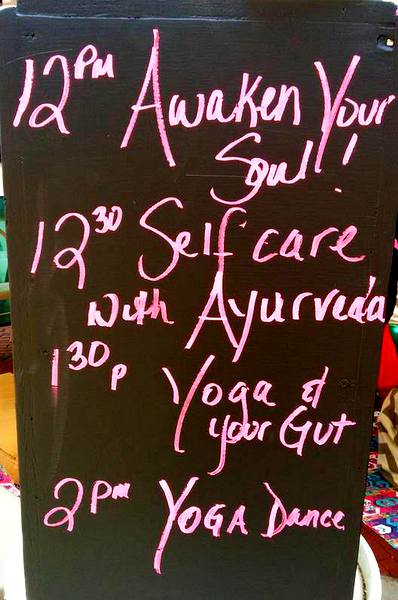 12PM Awaken Your
Soul!
1230 Self care
with Ayurveda
130p Yoga &
your Gut
2PM YOGA Dance